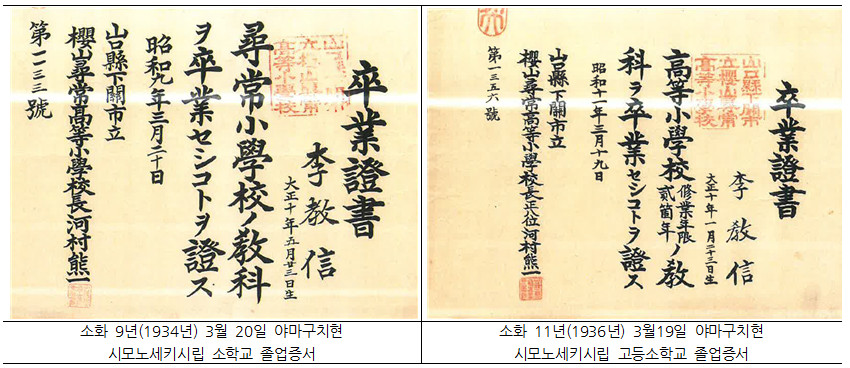 卒業證書
李敎信
大正十年五月廿三日生
尋常小學校ノ敎科
ヲ卒業セシコトヲ證ス
昭和九年三月二十日
山口縣下關市立
櫻山尋常高等小學校長河村熊一
卒業證書
李敎信
大正十年一月二十三日生
高等小學校修業年限貳箇年ノ敎
科ヲ卒業セシコトヲ證ス
昭和十一年三月十九日
山口縣下關市立
櫻山尋常高等小學校長正八位河村熊一
第一三五六號
소화 9년(1934년) 3월 20일 야마구치현
시모노세키시립 소학교 졸업증서
소화 11년(1936년) 3월19일 야마구치현
시모노세키시립 고등소학교 졸업증서